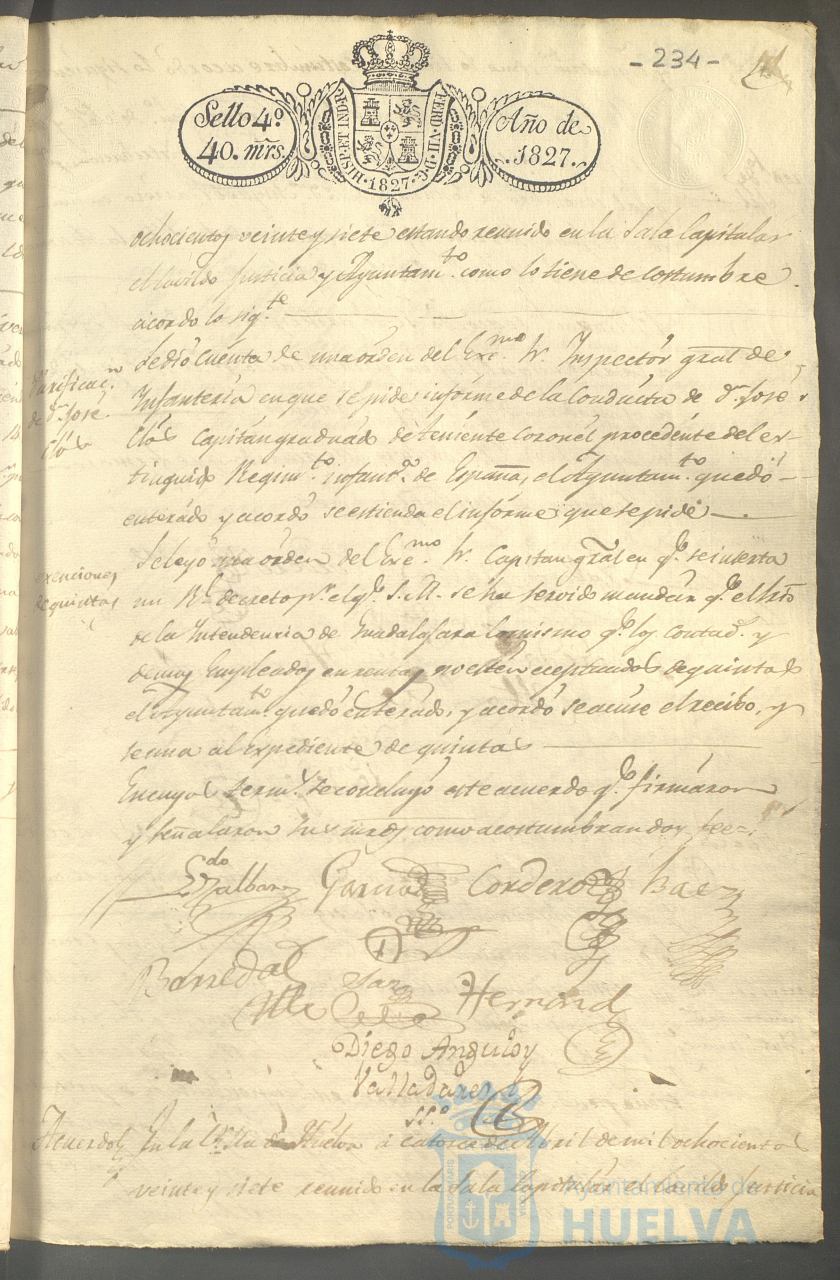 - 234 -
Sello 4º
40. mrs.
HISP. ET IND. R.
FERD. VII. D. G.
· 1827 ·
Año de
. 1827 .
ochocientos veinte y siete estando reunido en la Sala Capitular
el Cavildo Justicia y Ayuntamto. como lo tiene de costumbre
acordo lo sigte.
Purificacn.
de Dn. José
Se dió cuenta de una orden del Exmo. Sr. Inspector gral de
Infanteria en que se pide informe de la Conducta de Dn. José
Capitan graduado de teniente Coronel procedente del ex-
tinguido Regimto. infanta. de España, el Ayuntamto. quedó
enterado y acordó se estienda el informe que se pide
exenciones
de quintas
Se leyó una orden del Exmo. Sr. Capitan gral en qe. se inserta
un Rl. decreto pr. el qe. S. M. se ha servido mandar qe. el
de la Intendencia de Guadalajara lo mismo qe. los Contads. y
demas Empleados en rentas no esten eceptuados de quintas
el Ayuntamto. quedó enterado, y acordó se acuse el recibo, y
se una al expediente de quintas
En cuyos term. se concluyó este acuerdo qe. firmaron
y señalaron sus mrds. como acostumbran doy fee=.
Garcia Cordero Baez
Barreda
Hernand
Diego Angulo y
Valladares
SSo.
Acuerdo En la Villa de Huelva á catorce de Abril de mil ochocientos
veinte y siete reunido en la Sala Capitular el Cavildo Justicia
Ayuntamiento de
HUELVA